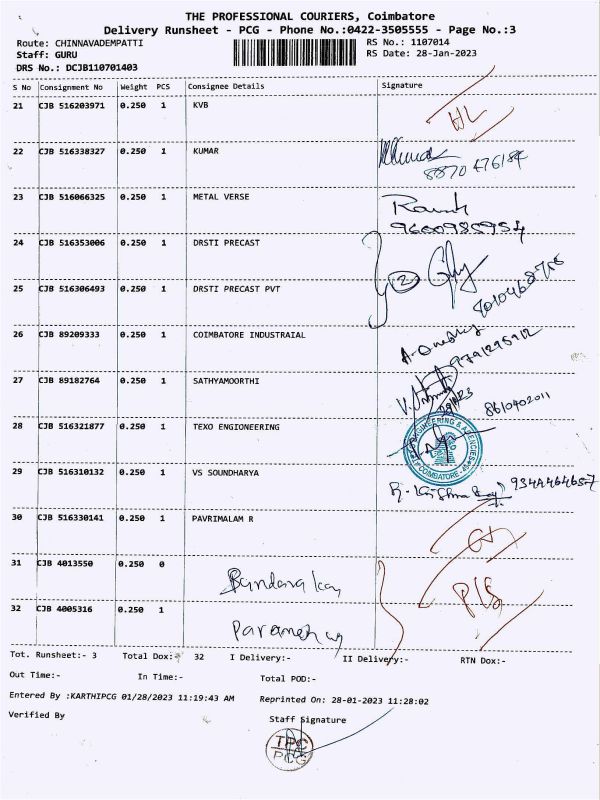 THE PROFESSIONAL COURIERS, Coimbatore
Delivery Runsheet - PCG - Phone No.:0422-3505555 - Page No.:3
Route: CHINNAVADEMPATTI RS No.: 1107014
Staff: GURU RS Date: 28-Jan-2023
DRS No.: DCJB110701403
S No Consignment No Weight PCS Consignee Details Signature
21 CJB 516203971 0.250 1 KVB
22 CJB 516338327 0.250 1 KUMAR
8870 476184
23 CJB 516066325 0.250 1 METAL VERSE
9600985954
24 CJB 516353006 0.250 1 DRSTI PRECAST
2
25 CJB 516306493 0.250 1 DRSTI PRECAST PVT
26 CJB 89209333 0.250 1 COIMBATORE INDUSTRAIAL
9791295912
27 CJB 89182764 0.250 1 SATHYAMOORTHI
8610402011
28 CJB 516321877 0.250 1 TEXO ENGIONEERING
ENGINEERING & AGENCIES
COIMBATORE
29 CJB 516310132 0.250 1 VS SOUNDHARYA
30 CJB 516330141 0.250 1 PAVRIMALAM R
31 CJB 4013550 0.250 0
32 CJB 4005316 0.250 1
Tot. Runsheet:- 3 Total Dox:- 32 I Delivery:- II Delivery:- RTN Dox:-
Out Time:- In Time:- Total POD:-
Entered By :KARTHIPCG 01/28/2023 11:19:43 AM Reprinted On: 28-01-2023 11:28:02
Verified By Staff Signature
TPC
PCG